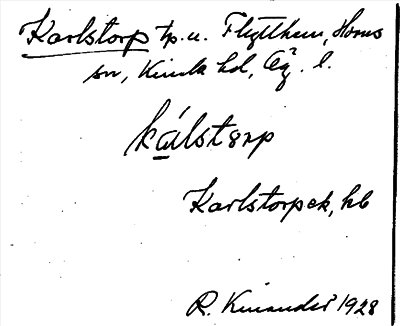 Karlstorp tp. u. Flytthem, Horns
sn, Kinda hd, Ög. l.
kálstørp
Karlstorpek, hb
R. Kinander 1928